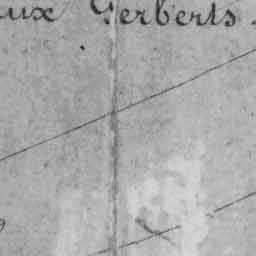 aux Gerberts.